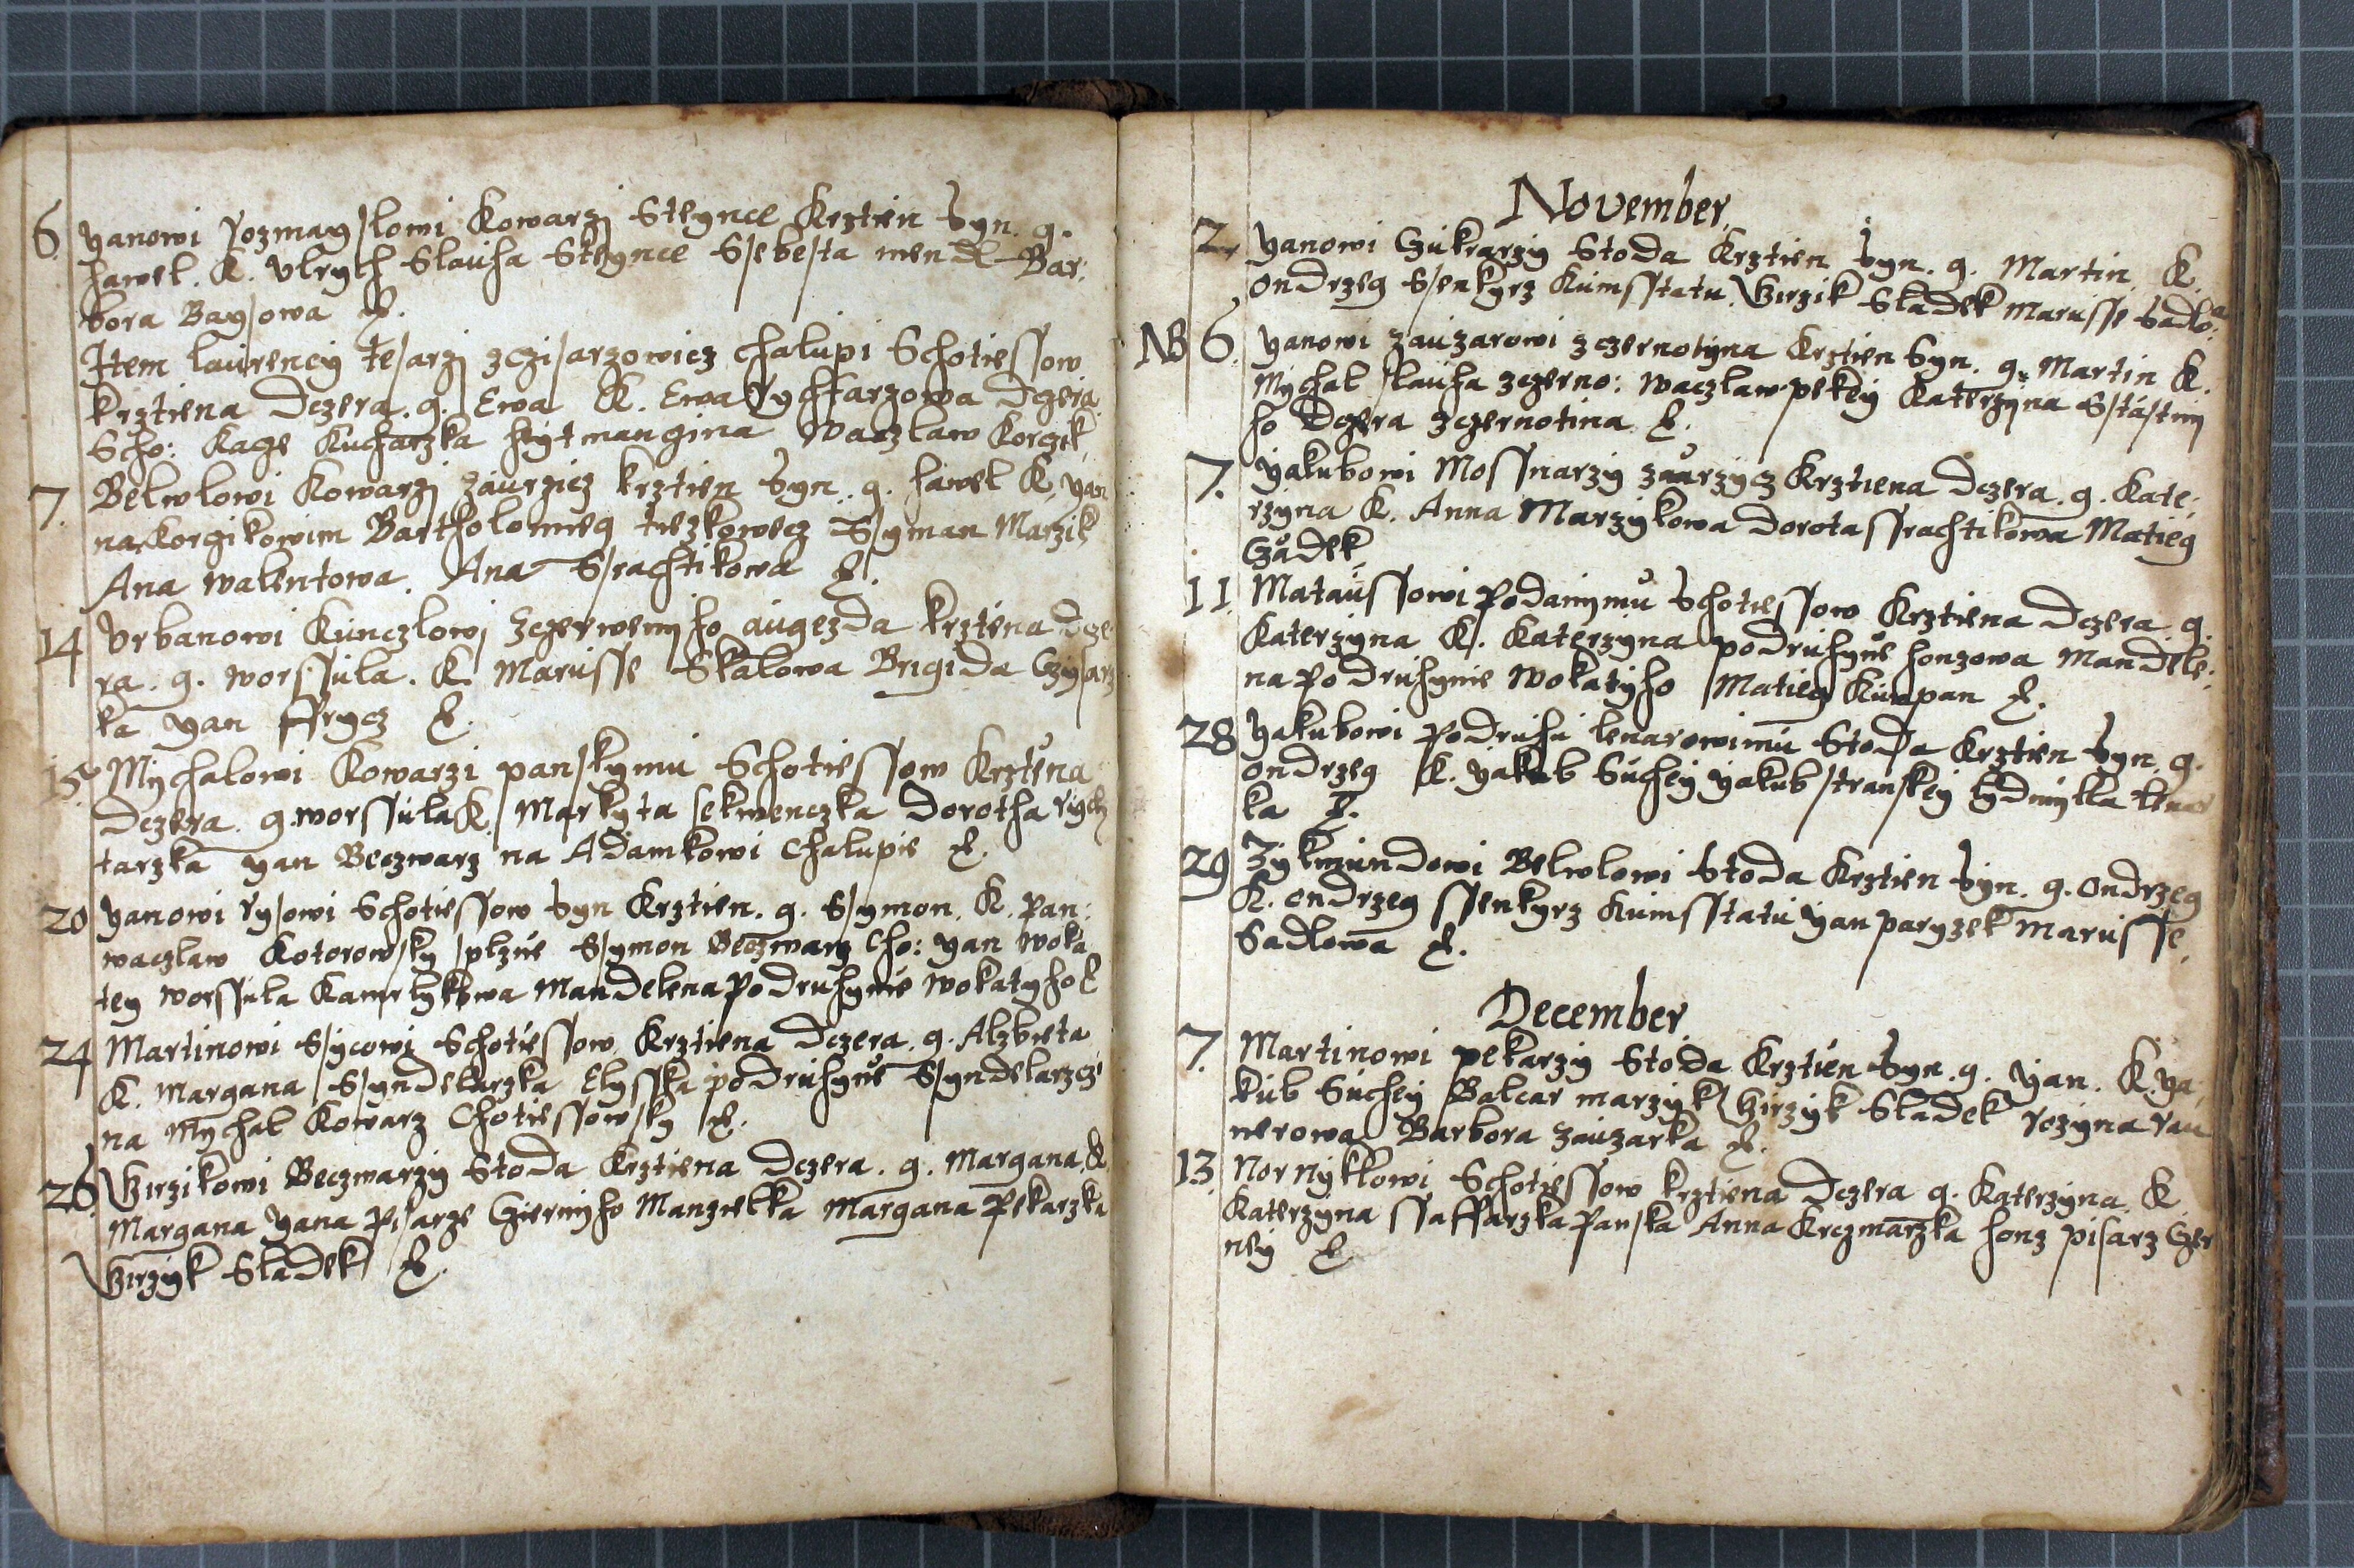 6. Yanowi Rozmayslowi Kowarzi Steynce Krztien Syn. g.
Hawel. K. Ulrych Slauha Steynce Ssebesta mendl Bar:
bora Baysowa &.
Item laurency tesarzi zczisarzowicz chalupi Schotiessow
krztiena Dczera. g. Ewa K. Ewa Rychtarzowa Dczera
Scho: Kage Kucharzka heytmangina Waczlaw Korczik
7. Belwlowi Kowarzi zaurzicz krztien Syn. g. Hawel K. yan
na Korgikowim Bartholomieg Ssyman Marzik
Ana walentowa. Ana Ssrachtikowa &.
14 Urbanowi Kunczlowi zczerweniho augezda krztiena Dcze
ra. g. worssula. K. Marusse Skalowa Brigida Czysarz
ka yan ffrycz &.
15. Mychalowi Kowarzi panskymu Schotiessow Krztena
Dczera. g. worssula K. Markyta sekwenczka Dorotha rych
tarzka yan Beczwarz na Adamkowi Chalupie &.
20 Yanowi rysowi Schotiessow Syn Krztien. g. Ssymon. K. pan:
waczlaw Kotorowsky splznie Ssymon Beczwarz Cho: yan woka
tey worssula Kamrlykowa Mandelena podruhynie wokatyho &
24 Martinowi Ssycowi Schotiessow Krztiena Dczera. g. Alzbieta
K. Margana Ssyndelarzka Elysska podruhynie Ssyndelarzcze
na Mychal Kowarz Chotiessowsky &.
26. Wirzikowi Beczwarziy Stoda Krztiena Dczera. g. Margana K
Margana Yana Pisarze Gierniyho Manzielka Margana Pekarzka
Wirzyk Sladek &.
November
2. Yanowi Czukrarziy Stoda Krztien Syn. g. Martin. K.
ondrzeg Ssenkyrz Kumsstatu. Wirzik Sladek Marusse Sadlo:
NB 6. Yanowi zauzarowi zczernotyna Krztien Syn. g. Martin K.
Mychal slauha zczerno: waczlaw pekny Katerzyna Sstastny
ho Dczera zczernotina &.
7. Yakubowi Mossnarziy zaurzycz Krztiena Dczera. g. Kate:
rzyna K. Anna Marzykowa Dorota ssrachtikowa Matieg
Czadek
11. Mataussowi Podanymu Schotiessow Krztiena Dczera g.
Katerzyna K. Katerzyna podruhynie honzowa Mandele:
na Podruhynie Wokatyho Matieg Kumpan &.
28 Yakubowi Podruhu lenarowimu Stoda Krztien Syn. g.
ondrzeg K. yakub Suchey yakub stranskey lydmylla lenar
ka &.
29 Zykmundowi Belwlowi Stoda Krztien Syn. g. ondrzeg
K. ondrzeg ssenkyrz Kumsstatu Yan paryzek Marusse
Sadlowa &.
December
7. Martinowi pekarziy Stoda Krztien Syn. g. Yan. K. ya:
kub Suchey Balcar marzyk Wirzyk Sladek rozyna rau
nerowa Barbora zauzarka &.
13. Nornykklowi Schotiessow krztiena Dczera g. Katerzyna. K
Katerzyna ssaffarzka Panska Anna Krczmarzka honz pisarz Gier
ney &.